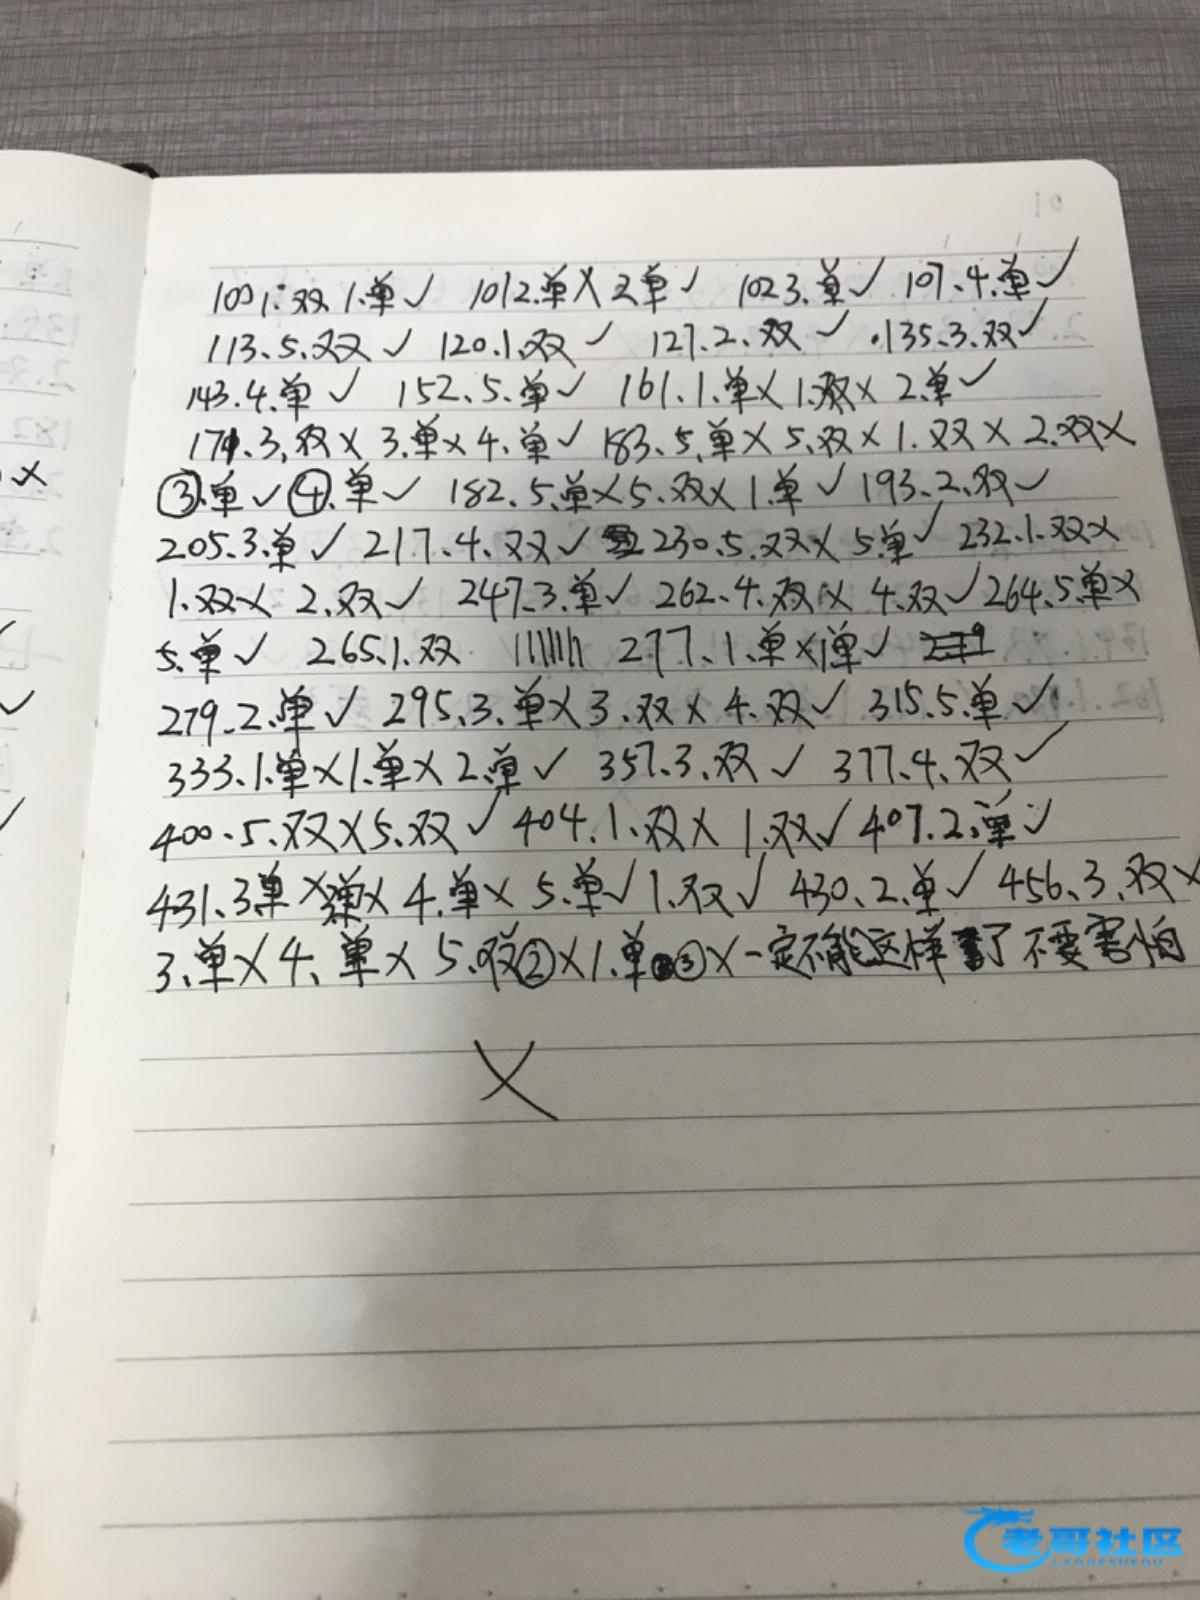 1001.双 1.单✓ 1012.单X 2单✓ 1023.单✓ 107.4.单✓
113.5.双✓ 120.1.双✓ 127.2.双✓ .135.3.双✓
143.4.单✓ 152.5.单✓ 161.1.单X 1.双X 2.单✓
171.3.双X 3.单X 4.单✓ 183.5.单X 5.双X 1.双X 2.双X
③.单✓ ④.单✓ 182.5.单X 5.双X 1.单✓ 193.2.双✓
205.3.单✓ 217.4.双✓ 230.5.双X 5单✓ 232.1.双X
1.双X 2.双✓ 247.3.单✓ 262.4.双X 4.双✓ 264.5.单X
5.单✓ 265.1.双 277.1.单X 1单✓
279.2.单✓ 295.3.单X 3.双X 4.双✓ 315.5.单✓
333.1.单X 1.单X 2.单✓ 357.3.双✓ 377.4.双✓
400.5.双X 5.双✓ 404.1.双X 1.双✓ 407.2.单✓
431.3单X 3.单X 4.单X 5.单✓ 1.双✓ 430.2.单✓ 456.3.双X
3.单X 4.单X 5.双②X 1.单③X 一定不能这样了 不要害怕
X
老哥社区
LAOGESHEQU